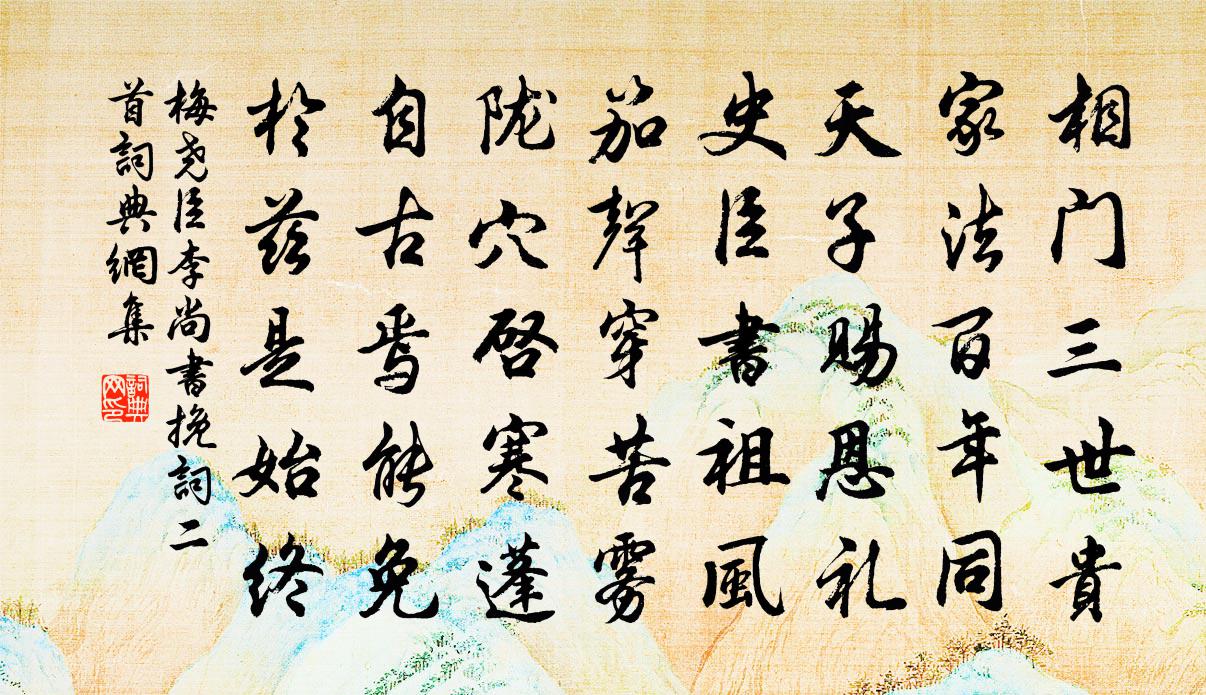 相门三世貴
家法百年同
天子赐恩礼
史臣書祖風
笳聲穿苦雾
陇穴啓寒蓬
自古焉能免
於兹是始终
梅尧臣李尚書挽詞二
首詞典網集
詞典
网印